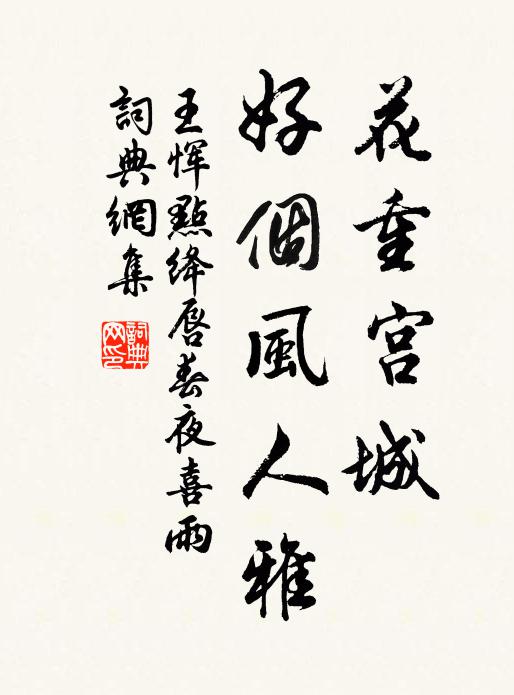 花重宮城
好個風人雅
王惲點絳唇春夜喜雨
詞典網集
詞典網印